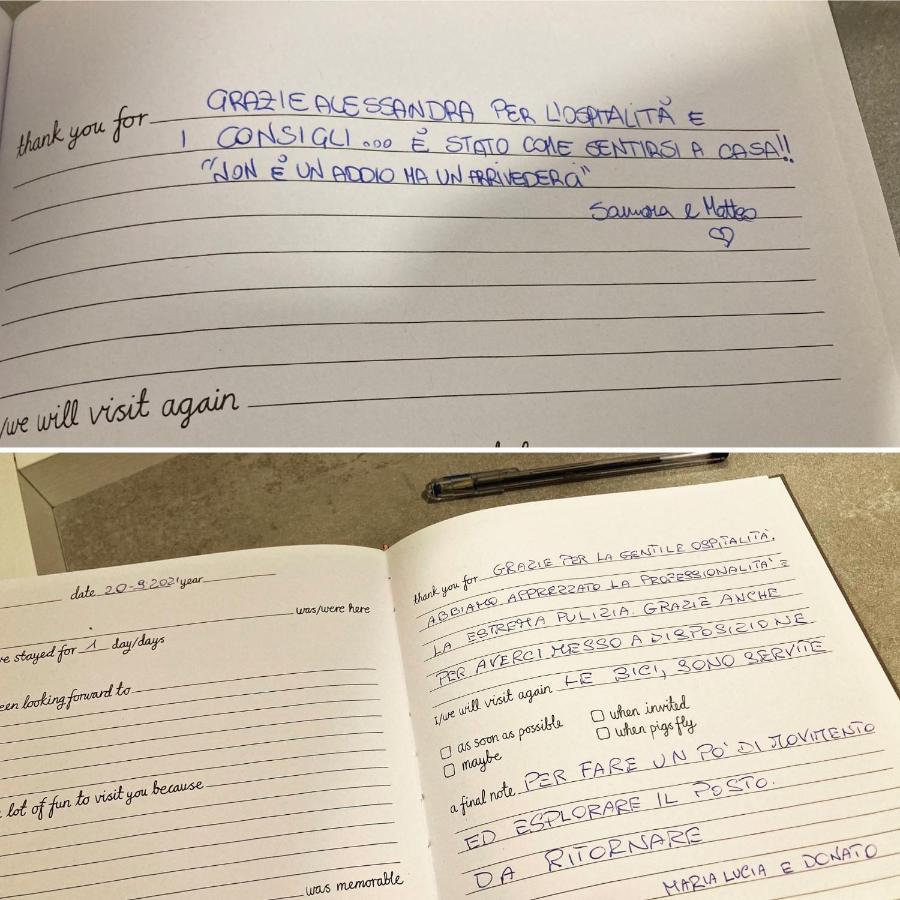 thank you for GRAZIE ALESSANDRA PER L'OSPITALITÀ E
I CONSIGLI... È STATO COME SENTIRSI A CASA!!
"NON È UN ADDIO MA UN ARRIVEDERCI"
Samora e Matteo
/we will visit again
date 20-9-2021 year
was/were here
we stayed for 1 day/days
een looking forward to
lot of fun to visit you because
was memorable
thank you for GRAZIE PER LA GENTILE OSPITALITÀ.
ABBIAMO APPREZZATO LA PROFESSIONALITÀ E
LA ESTREMA PULIZIA. GRAZIE ANCHE
PER AVERCI MESSO A DISPOSIZIONE
i/we will visit again LE BICI, SONO SERVITE
as soon as possible when invited
maybe when pigs fly
a final note PER FARE UN PO' DI MOVIMENTO
ED ESPLORARE IL POSTO.
DA RITORNARE
MARIA LUCIA E DONATO